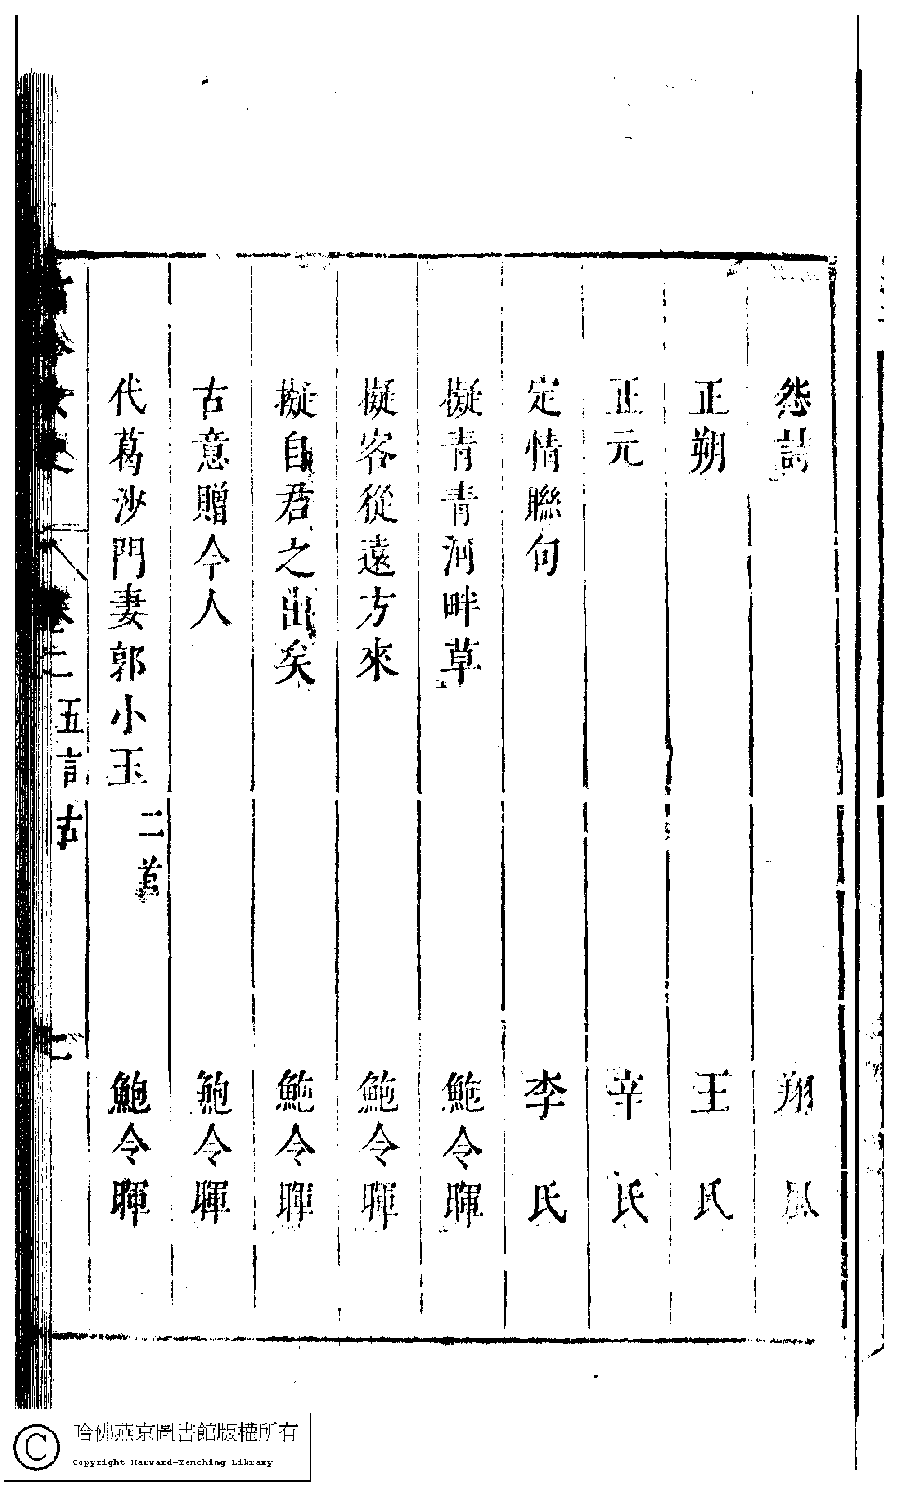 怨詩 翔風
正朔 王氏
正元 辛氏
定情聯句 李氏
擬青青河畔草 鮑令暉
擬客從遠方來 鮑令暉
擬自君之出矣 鮑令暉
古意贈今人 鮑令暉
代葛沙門妻郭小玉 二首 鮑令暉
卷之 五言古 七
哈佛燕京圖書館版權所有
Copyright Harvard-Yenching Library